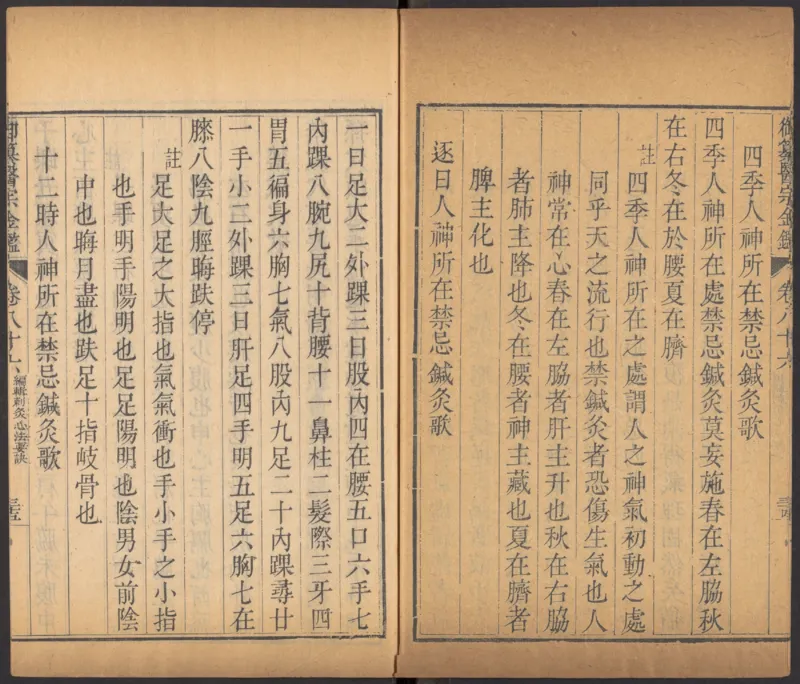 御纂醫宗金鑑
卷八十六
四季人神所在禁忌鍼灸歌
四季人神所在處禁忌鍼灸莫妄施春在左脇秋
在右冬在於腰夏在臍
註四季人神所在之處謂人之神氣初動之處
同乎天之流行也禁鍼灸者恐傷生氣也人
神常在心春在左脇者肝主升也秋在右脇
者肺主降也冬在腰者神主藏也夏在臍者
脾主化也
逐日人神所在禁忌鍼灸歌
一日足大二外踝三日股內四在腰五口六手七
內踝八腕九尻十背腰十一鼻柱二髮際三牙四
胃五徧身六胸七氣八股內九足二十內踝尋廿
一手小二外踝三日肝足四手明五足六胸七在
膝八陰九脛晦趺停
註足大足之大指也氣氣衝也手小手之小指
也手明手陽明也足足陽明也陰男女前陰
中也晦月盡也趺足十指岐骨也
十二時人神所在禁忌鍼灸歌
御纂醫宗金鑑
卷八十六
編輯刺灸心法要訣